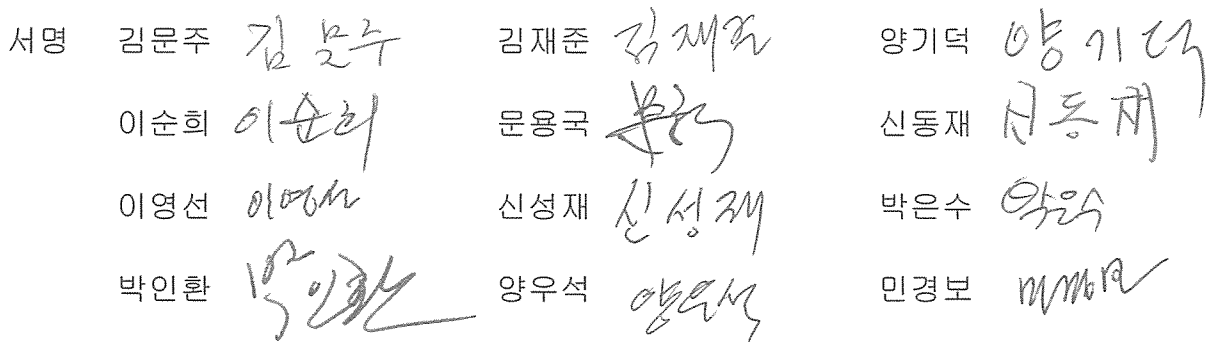 서명 김문주 김문주 김재준 김재준 양기덕 양기덕
이순희 이순희 문용국 문용국 신동재 신동재
이영선 이영선 신성재 신성재 박은수 박은수
박인환 박인환 양우석 양우석 민경보 민경보